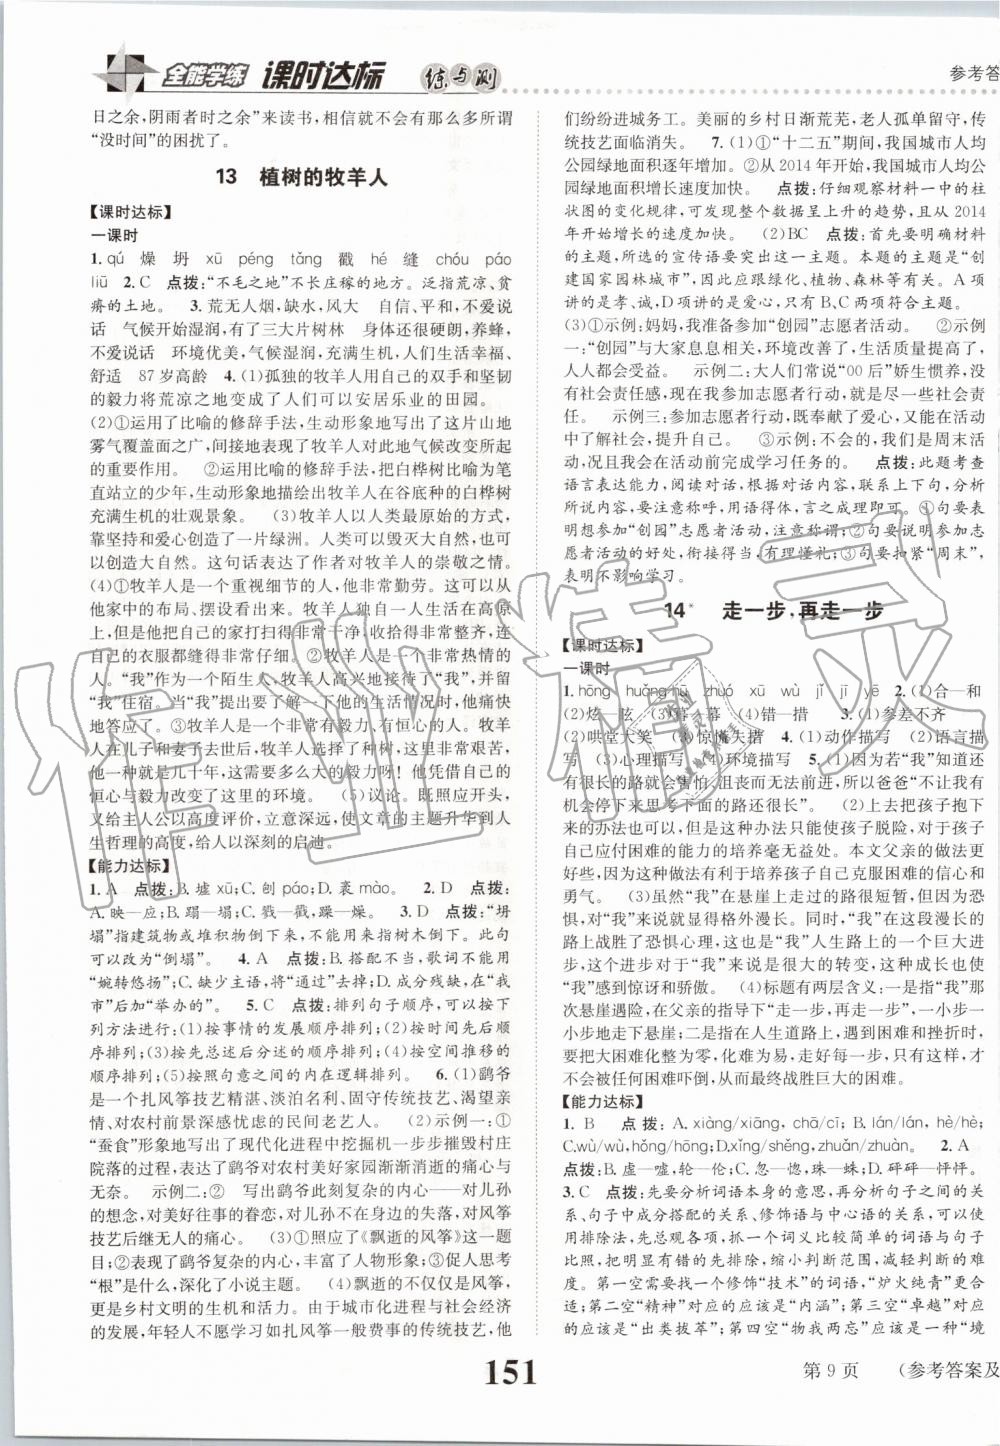 全能学练 课时达标 练与测
日之余,阴雨者时之余”来读书,相信就不会有那么多所谓
“没时间”的困扰了。
13 植树的牧羊人
【课时达标】
一课时
1. qú 燥 坍 xū péng tǎng 戳 hé 缝 chóu páo
liū 2. C 点拨:“不毛之地”不长庄稼的地方。泛指荒凉、贫
瘠的土地。 3. 荒无人烟,缺水,风大 自信、平和,不爱说
话 气候开始湿润,有了三大片树林 身体还很硬朗,养蜂,
不爱说话 环境优美,气候湿润,充满生机,人们生活幸福、
舒适 87 岁高龄 4. (1)孤独的牧羊人用自己的双手和坚韧
的毅力将荒凉之地变成了人们可以安居乐业的田园。
(2)①运用比喻的修辞手法,生动形象地写出了这片山地
雾气覆盖面之广,间接地表现了牧羊人对此地气候改变所起
的重要作用。 ②运用比喻的修辞手法,把白桦树比喻为笔
直站立的少年,生动形象地描绘出牧羊人在谷底种的白桦树
充满生机的壮观景象。 (3)牧羊人以人类最原始的方式,
靠坚持和辛劳创造了一片绿洲。人类可以毁灭大自然,也
可以创造大自然。这句话表达了作者对牧羊人的崇敬之情。
(4)①牧羊人是一个重视细节的人,他非常勤劳。这可以从
他家中的布局、摆设看出来。牧羊人的生活条件是异常艰
苦,但是他自己的家打扫得非常干净,收拾得非常整齐,连
自己的衣服都缝得非常仔细。②牧羊人是一个慷慨大方的
人。“我”作为一个陌生人,牧羊人高兴地接待了“我”,并留
“我”住宿。当“我”提出和他一起去种树时,他也愉快地
答应了。③牧羊人是一个非常有毅力,有恒心的人。牧羊
人在儿子和妻子去世后,来到那里种树,那里非常艰苦,他
一种就是几十年,这需要多么大的毅力呀!他凭借着自己的
恒心与毅力改变了这里的环境。 (5)议论。既照应开头,
又给主人公以高度评价,立意深远,使文章的主题升华到人
生哲理的高度,给人以深刻的启迪。
【能力达标】
1. A 点拨:B. 墟 xū;C. 刨 páo;D. 袤 mào。 2. D 点拨:
A. 映—应;B. 蹋—塌;C. 戮—戳;D. 躁—燥。 3. D 点拨:“坍
塌”指建筑物或堆积物倒下来,不能用来指树木倒下。此句
可以改为“倒塌”。 4. A 点拨:B. 搭配不当,歌词不能用
“婉转悠扬”;C. 缺少主语,去掉“通过”;D. 成分残缺,在“我
市”后加“举办的”。 5. C 点拨:排列句子顺序,可以按下
列方法进行:(1)按事情的发展顺序排列;(2)按时间的先后
顺序排列;(3)按先总述后分述的顺序;(4)按空间推移的
顺序排列;(5)按照句意之间的内在逻辑排列。 6. (1)鹞爷
是一个扎风筝技艺精湛、淡泊名利、固守传统技艺、渴望亲
情、对农村前景深感忧虑的民间老艺人。 (2)示例一:①
“蚕食”形象地写出了现代化进程中挖掘机一步步摧毁村庄
院落的过程,表达了鹞爷对农村美好家园渐渐消逝的痛心与
无奈。 示例二:② 写出鹞爷此刻复杂的内心——对儿孙
的想念,对美好往事的眷恋,对儿孙不在身边的失落,对风筝
技艺后继无人的痛心。 (3)①照应了《飘逝的风筝》这一题
目;②表现了鹞爷复杂的内心,丰富了人物形象;③促使鹞爷
“根”是什么,深化了小说主题。 (4)飘逝的不仅仅是风筝,
更是乡村文明的生机和活力。由于城市化进程与社会经济
的发展,年轻人不愿学习如扎风筝一般费事的传统技艺,他
参考答
们纷纷进城务工。美丽的乡村日渐荒芜,老人孤单留守,传
统技艺面临消失。 7. (1)①“十二五”期间,我国城市人均
公园绿地面积逐年增加。②从 2014 年开始,我国城市人均公
园绿地面积增长速度加快。 点拨:仔细观察材料一中的柱
状图的变化规律,可发现整个数据呈上升的趋势,且从 2014
年开始增长的速度加快。 (2)BC 点拨:首先要明确材料
的主题,所选的宣传语要突出这一主题。本题的主题是“创
建国家园林城市”,因此应跟绿化、植物、森林等有关。A 项
讲的是孝、诚,D 项讲的是爱护公物,只有 B、C 两项符合主题。
(3)①示例:妈妈,我准备参加“创园”志愿者活动。 ②示例
一:“创园”与大家息息相关,环境改善了,生活质量提高了,
人人都会受益。 示例二:大人们常说“00 后”娇生惯养,没
有社会责任感,现在我参加志愿者行动,就是尽一些社会责
任。 示例三:参加志愿者行动,既奉献了爱心,又能在活动
中了解社会,提升自己。 ③示例:不会的,我们是周末活
动,我会在活动前完成学习任务的。 点拨:此题考查
语言表达能力,阅读对话,根据对话,联系上下句,分析
内容,要注意称呼,用语得体,言之成理即可。①句要表
明想参加“创园”志愿者活动,注意称谓;②句要说明参加
志愿者活动的好处,衔接得当,有理懂礼;③句要扣“周末”,
表明不影响学习。
14* 走一步,再走一步
【课时达标】
一课时
1. hōng huǎng nù zhuó xū wù jǐ jī yē 2. (1)合—和
(2)炫—眩 (3)暮—幕 (4)错—措 3. (1)参差不齐
(2)哄堂大笑 (3)惊慌失措 4. (1)动作描写 (2)语言描
写 (3)心理描写 (4)环境描写 5. (1)因为若“我”知道
还有很长的路就会害怕、沮丧而无法前进,所以爸爸“不让我有
停下来思考下面的路还很长”。 (2)上去把孩子抱下
来的办法也可以,但这种办法只能使孩子脱险,对于孩子
自己应对困难的能力的培养毫无益处。本文父亲的做法更
好。父亲的做法有利于培养孩子自己克服困难的信心和
勇气。 (3)虽然“我”在悬崖上走过的路很短暂,但因为恐
惧,对“我”来说就显得格外漫长。同时,“我”在这漫长的
路上战胜了恐惧心理,这也是“我”人生路上的一个巨大进
步,这个进步对于“我”来说是一个很大的转变,这让“我”
感到惊讶和骄傲。 (4)标题有两层含义:一是指“我”小时候
悬崖遇险,在父亲的指导下“走一步,再走一步”,一小步一
小步地走下悬崖;二是指在人生道路上,遇到困难和挫折时,要
把大困难化整为零,化大为小,每走好一步,就解决一个小困难,
不被大困难吓倒,从而最终战胜巨大的困难。
【能力达标】
1. B 点拨:A. xiàng/xiāng, chā/cī; B. lán/lán, hè/hè;
C. wù/wù, hǒng/hōng; D. xǐng/shěng, zhuǎn/zhuàn。 2. A
点拨:B. 虚—嘘,轮—伦;C. 忽—惚;D. 砰砰—怦怦。
3. C 点拨:先要分析词语本身的意思,再分析句子之间的关
系,尤其是复句的关系、修饰语与中心语的关系、句子与句
子之间的语境关系。抓一个词义比较简单的词语与句子
比照,把明显有错的先排除,缩小判断范围,减轻判断的难
度。第一空需要找一个修饰“技术”的词语,“炉火纯青”更合
适;第二空“精神”对应的应该是“内涵”;第三空“卓越”对应的
应该是“出类拔萃”;第四空“物我两忘”应该是一种“境
151
第 9 页 (参考答案及